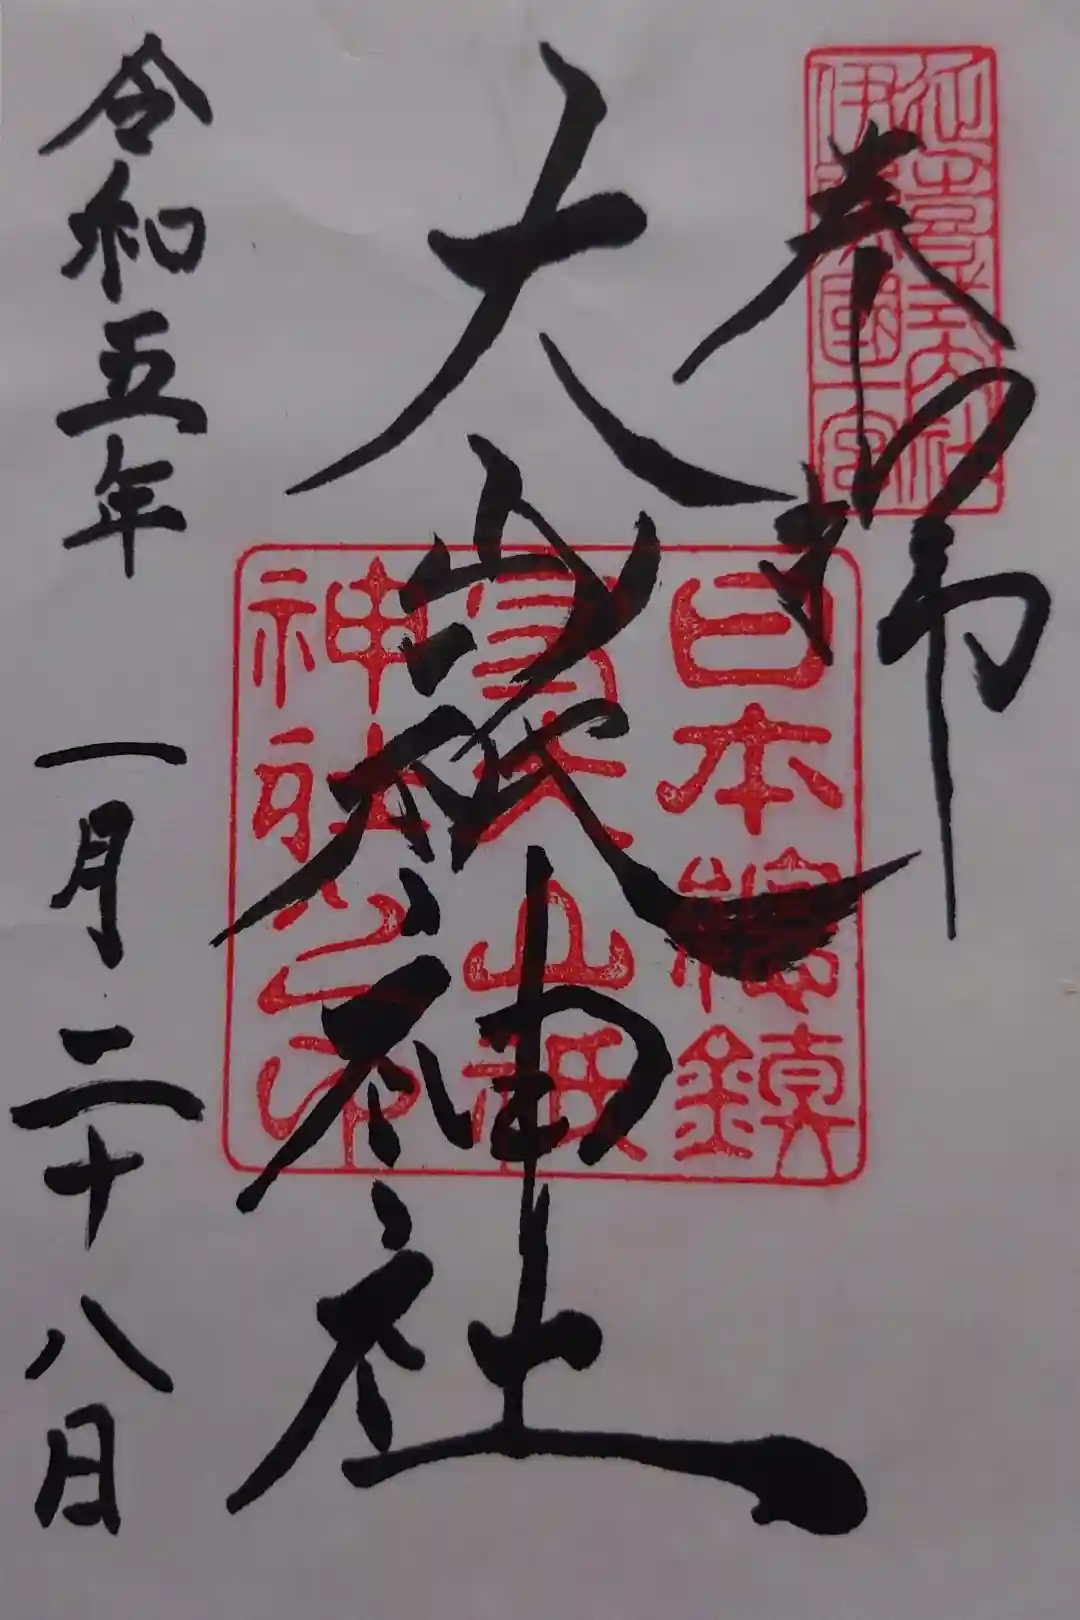 奉拝
延喜式内社
伊豫國一宮
日本總鎮
守大山祇
神社之印
大山祇神社
令和五年一月二十八日